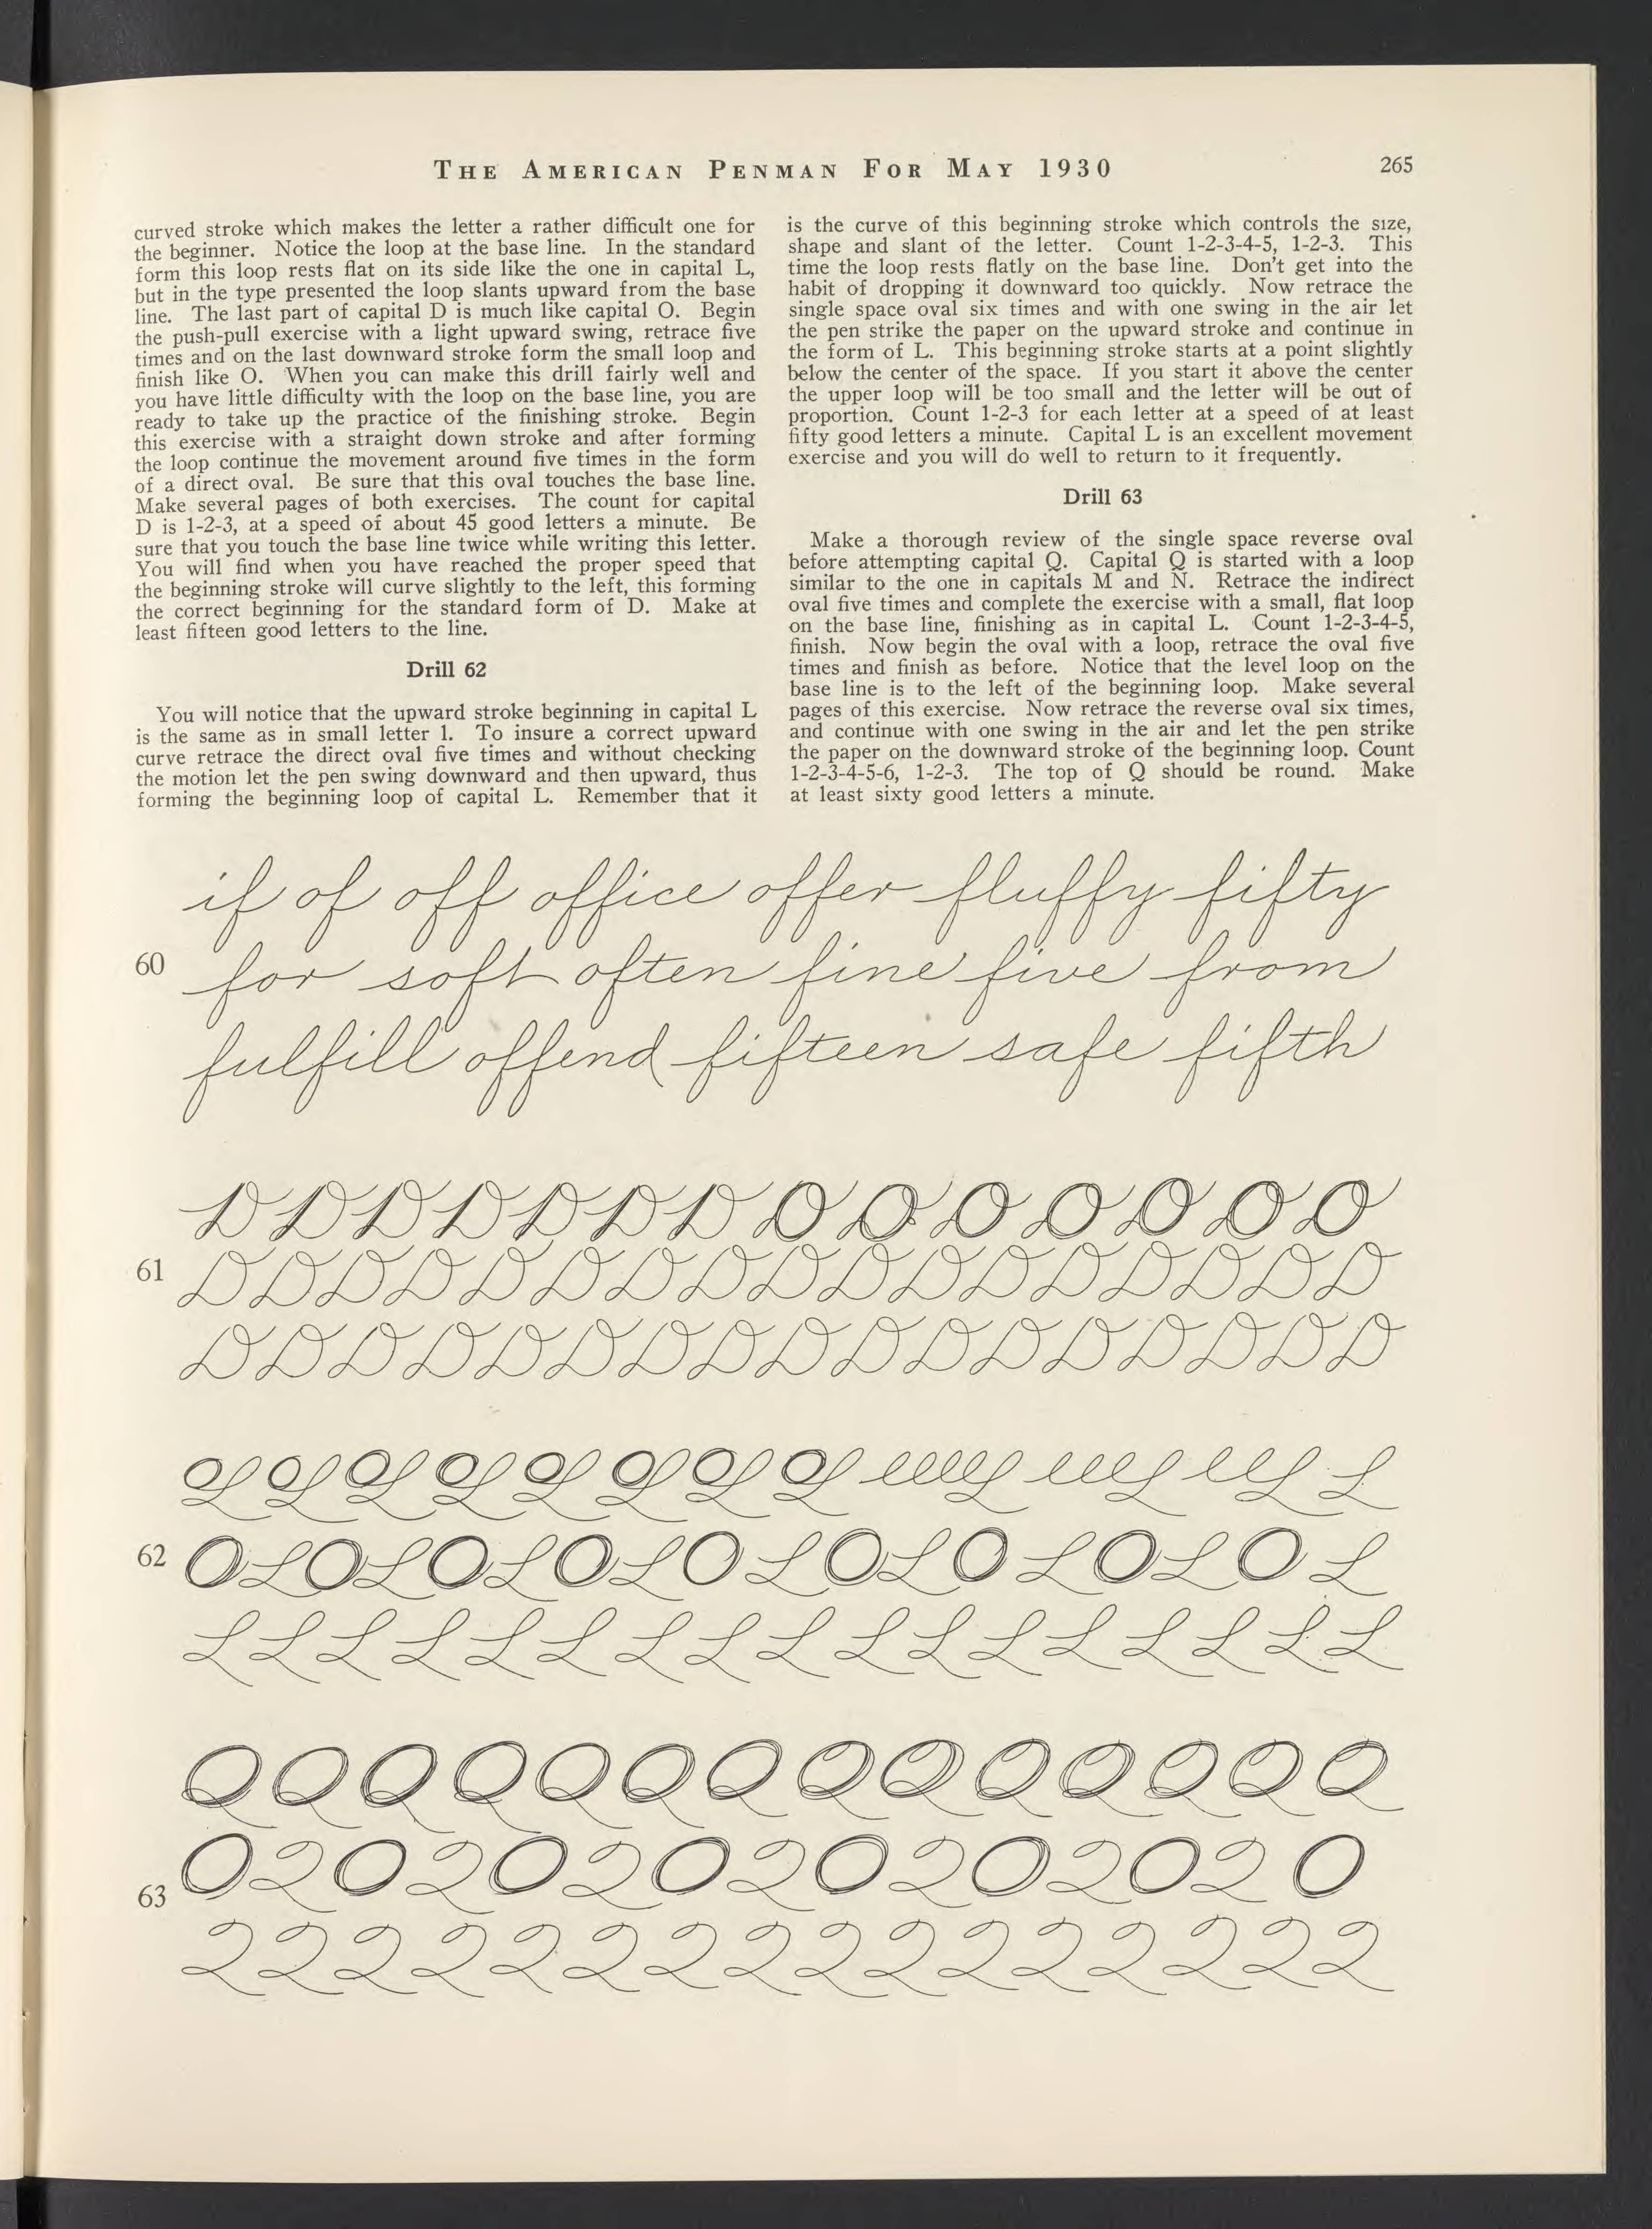 THE AMERICAN PENMAN FOR MAY 1930 265
curved stroke which makes the letter a rather difficult one for
the beginner. Notice the loop at the base line. In the standard
form this loop rests flat on its side like the one in capital L,
but in the type presented the loop slants upward from the base
line. The last part of capital D is much like capital O. Begin
the push-pull exercise with a light upward swing, retrace five
times and on the last downward stroke form the small loop and
finish like O. When you can make this drill fairly well and
you have little difficulty with the loop on the base line, you are
ready to take up the practice of the finishing stroke. Begin
this exercise with a straight down stroke and after forming
the loop continue the movement around five times in the form
of a direct oval. Be sure that this oval touches the base line.
Make several pages of both exercises. The count for capital
D is 1-2-3, at a speed of about 45 good letters a minute. Be
sure that you touch the base line twice while writing this letter.
You will find when you have reached the proper speed that
the beginning stroke will curve slightly to the left, this forming
the correct beginning for the standard form of D. Make at
least fifteen good letters to the line.
Drill 62
You will notice that the upward stroke beginning in capital L
is the same as in small letter l. To insure a correct upward
curve retrace the direct oval five times and without checking
the motion let the pen swing downward and then upward, thus
forming the beginning loop of capital L. Remember that it
is the curve of this beginning stroke which controls the size,
shape and slant of the letter. Count 1-2-3-4-5, 1-2-3. This
time the loop rests flatly on the base line. Don't get into the
habit of dropping it downward too quickly. Now retrace the
single space oval six times and with one swing in the air let
the pen strike the paper on the upward stroke and continue in
the form of L. This beginning stroke starts at a point slightly
below the center of the space. If you start it above the center
the upper loop will be too small and the letter will be out of
proportion. Count 1-2-3 for each letter at a speed of at least
fifty good letters a minute. Capital L is an excellent movement
exercise and you will do well to return to it frequently.
Drill 63
Make a thorough review of the single space reverse oval
before attempting capital Q. Capital Q is started with a loop
similar to the one in capitals M and N. Retrace the indirect
oval five times and complete the exercise with a small, flat loop
on the base line, finishing as in capital L. Count 1-2-3-4-5,
finish. Now begin the oval with a loop, retrace the oval five
times and finish as before. Notice that the level loop on the
base line is to the left of the beginning loop. Make several
pages of this exercise. Now retrace the reverse oval six times,
and continue with one swing in the air and let the pen strike
the paper on the downward stroke of the beginning loop. Count
1-2-3-4-5-6, 1-2-3. The top of Q should be round. Make
at least sixty good letters a minute.
if of off office offer fluffy fifty
60 for soft often fine five from
fulfill offend fifteen safe fifth
D D D D D D D O O O O O O O
61 D D D D D D D D D D D D D D D D D
D D D D D D D D D D D D D D D D D
L L L L L L L L L L L L
62 O L O L O L O L O L O L O L O L O L
L L L L L L L L L L L L L L L L L
Q Q Q Q Q Q Q Q Q Q Q Q Q Q
63 O Q O Q O Q O Q O Q O Q O Q O
Q Q Q Q Q Q Q Q Q Q Q Q Q Q Q Q